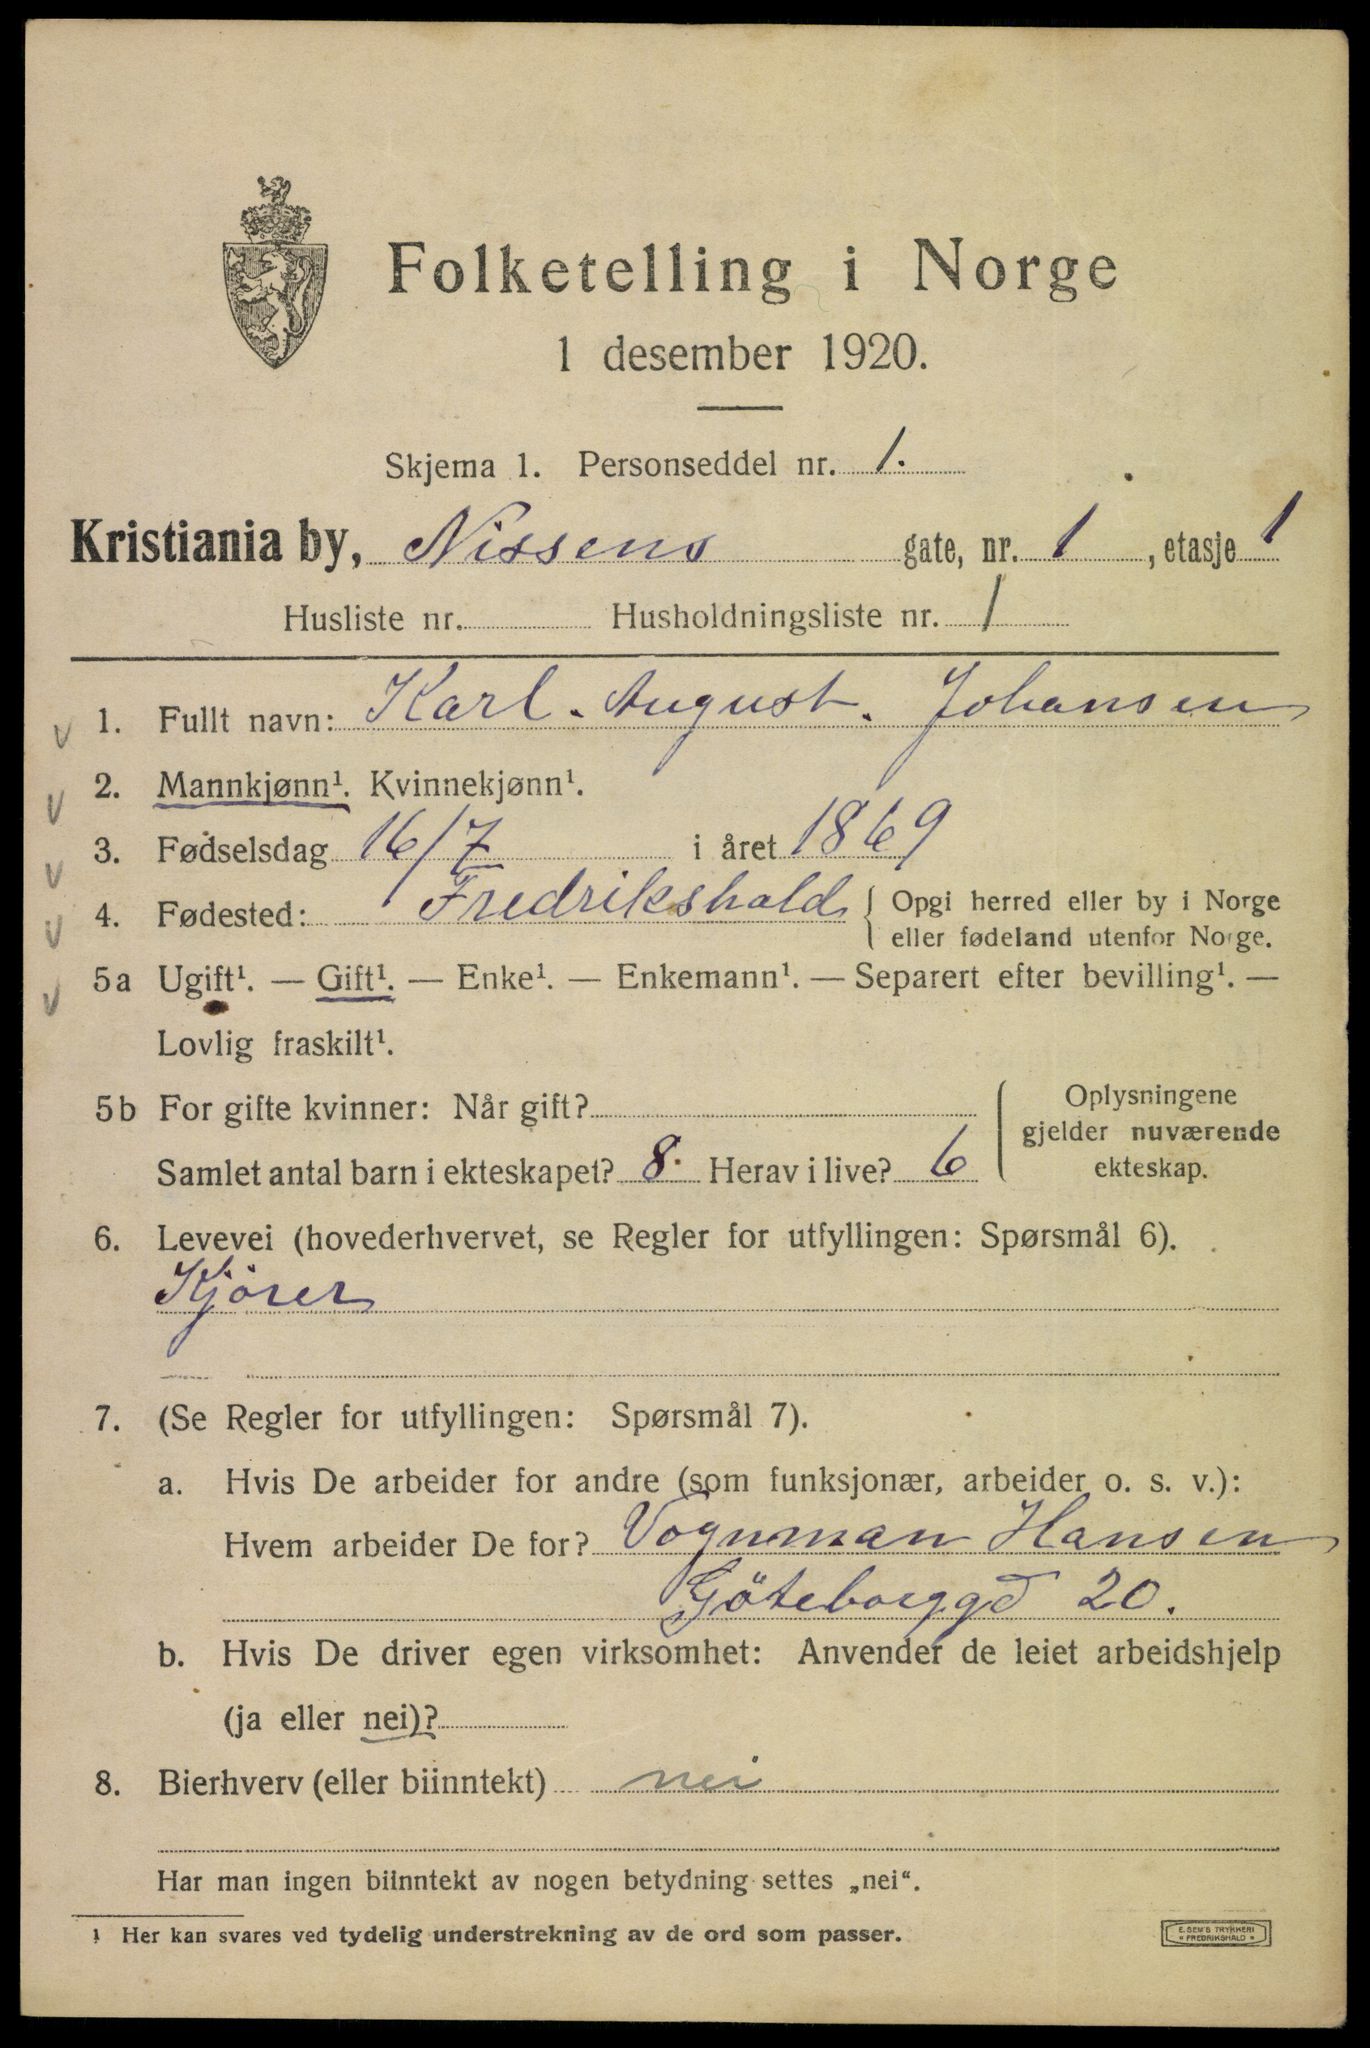 Folketelling i Norge
1 desember 1920.
Skjema 1. Personseddel nr. 1.
Kristiania by, Nissens gate, nr. 1, etasje 1
Husliste nr. Husholdningsliste nr. 1
1. Fullt navn: Karl. August. Johansen
2. Mannkjønn¹. Kvinnekjønn¹.
3. Fødselsdag 16/7 i året 1869
4. Fødested: Fredrikshald { Opgi herred eller by i Norge
eller fødeland utenfor Norge.
5a Ugift¹. — Gift¹. — Enke¹. — Enkemann¹. — Separert efter bevilling¹. —
Lovlig fraskilt¹.
5b For gifte kvinner: Når gift?
Samlet antal barn i ekteskapet? 8. Herav i live? 6
Oplysningene
gjelder nuværende
ekteskap.
6. Levevei (hovederhvervet, se Regler for utfyllingen: Spørsmål 6).
Kjörer
7. (Se Regler for utfyllingen: Spørsmål 7).
a. Hvis De arbeider for andre (som funksjonær, arbeider o. s. v.):
Hvem arbeider De for? Vognman Hansen
Göteborggd 20.
b. Hvis De driver egen virksomhet: Anvender de leiet arbeidshjelp
(ja eller nei)?
8. Bierhverv (eller biinntekt) nei
Har man ingen biinntekt av nogen betydning settes „nei“.
¹ Her kan svares ved tydelig understrekning av de ord som passer.
E. SEM'S TRYKKERI
* FREDRIKSHALD *